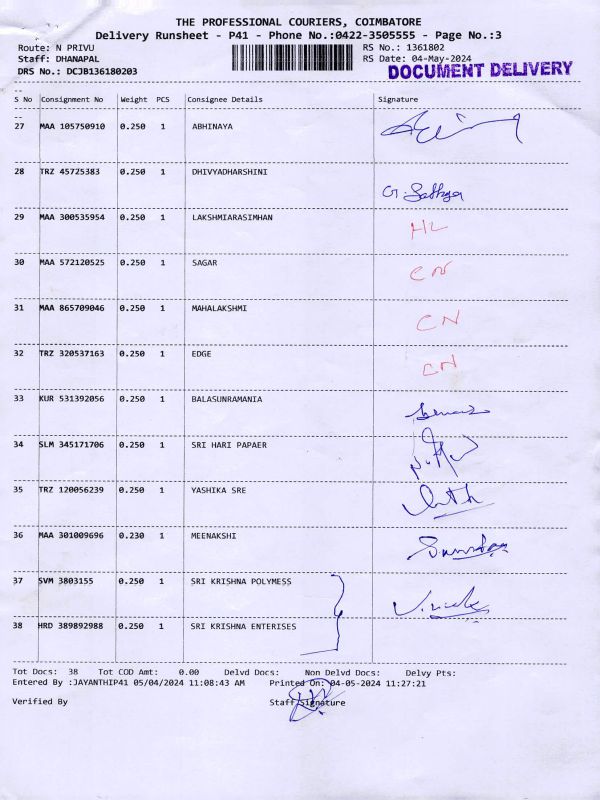 THE PROFESSIONAL COURIERS, COIMBATORE
Delivery Runsheet - P41 - Phone No.:0422-3505555 - Page No.:3
Route: N PRIVU RS No.: 1361802
Staff: DHANAPAL RS Date: 04-May-2024
DRS No.: DCJB136180203 DOCUMENT DELIVERY
--
S No Consignment No Weight PCS Consignee Details Signature
--
27 MAA 105750910 0.250 1 ABHINAYA
28 TRZ 45725383 0.250 1 DHIVYADHARSHINI
G. Sathya
29 MAA 300535954 0.250 1 LAKSHMIARASIMHAN HL
30 MAA 572120525 0.250 1 SAGAR CN
31 MAA 865709046 0.250 1 MAHALAKSHMI CN
32 TRZ 320537163 0.250 1 EDGE CN
33 KUR 531392056 0.250 1 BALASUNRAMANIA
34 SLM 345171706 0.250 1 SRI HARI PAPAER
35 TRZ 120056239 0.250 1 YASHIKA SRE
36 MAA 301009696 0.230 1 MEENAKSHI
37 SVM 3803155 0.250 1 SRI KRISHNA POLYMESS
38 HRD 389892988 0.250 1 SRI KRISHNA ENTERISES
Tot Docs: 38 Tot COD Amt: 0.00 Delvd Docs: Non Delvd Docs: Delvy Pts:
Entered By :JAYANTHIP41 05/04/2024 11:08:43 AM Printed On: 04-05-2024 11:27:21
Verified By Staff Signature